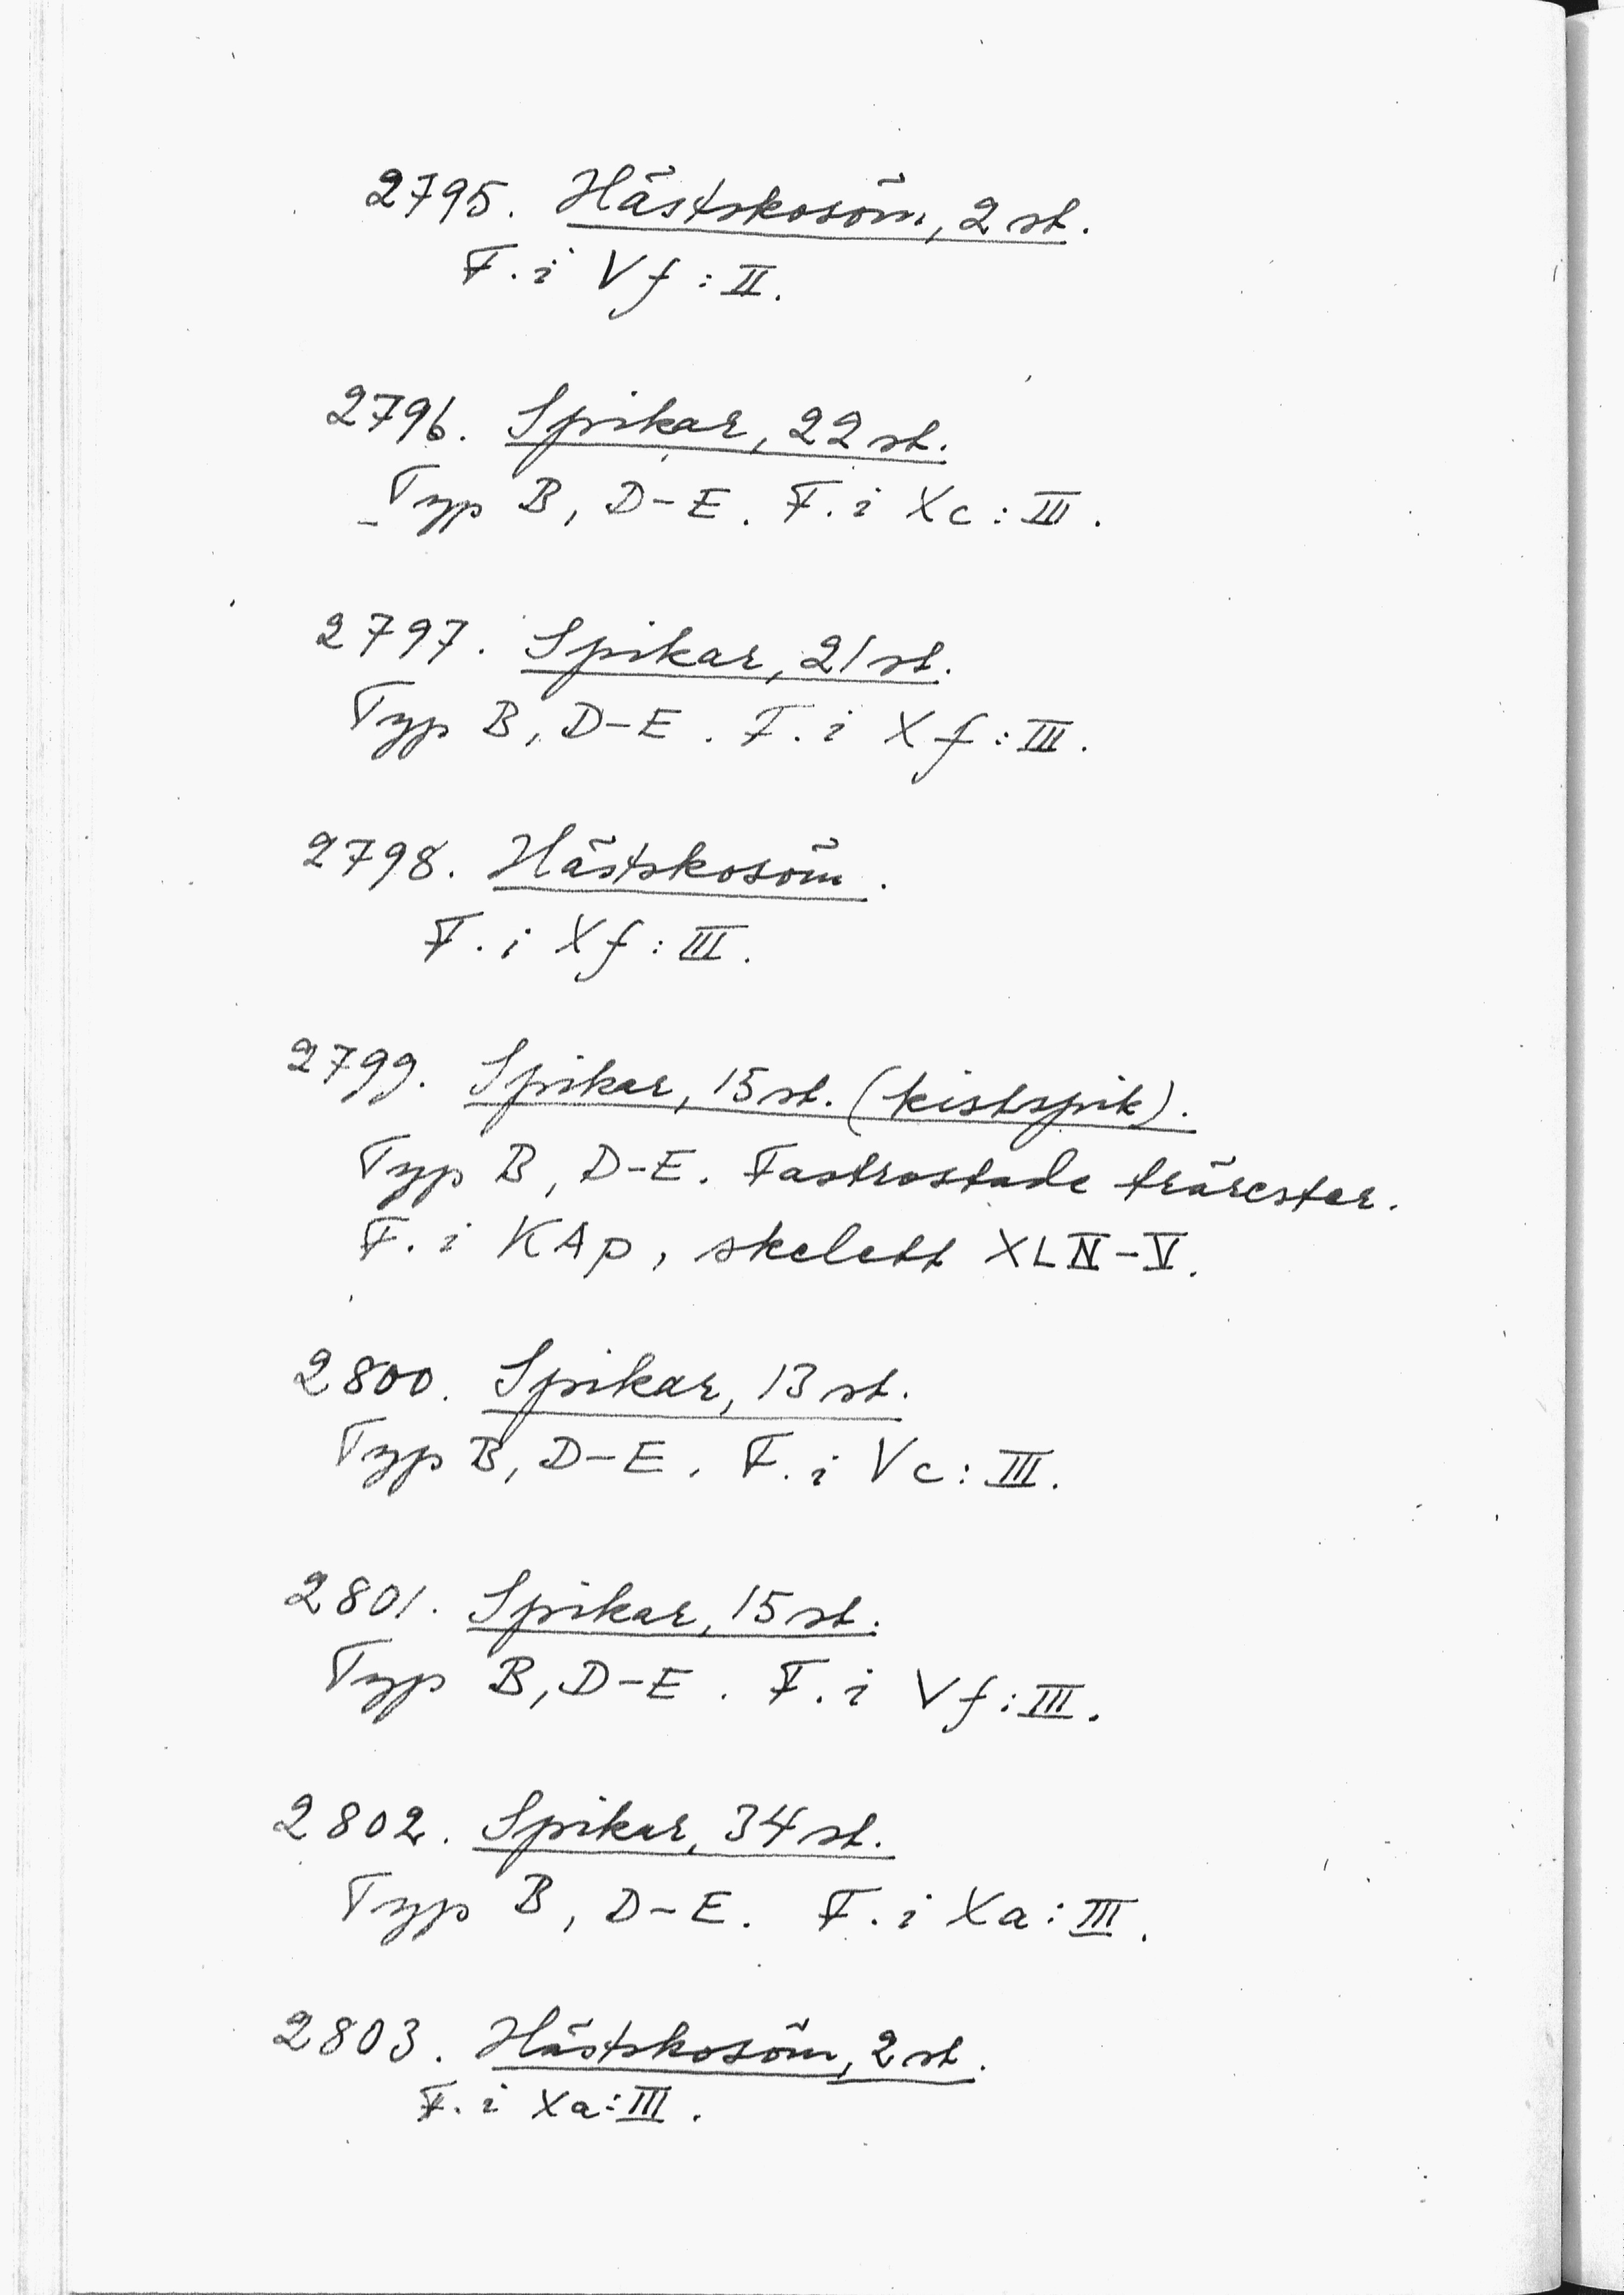 2795. Hästskosöm, 2 st.
F. i Vf : II.
2796. Spikar, 22 st.
Typ B, D-E. F. i Xc : III.
2797. Spikar, 21 st.
Typ B, D-E. F. i Xf : III.
2798. Hästskosöm.
F. i Xf : III.
2799. Spikar, 15 st. (kistspik).
Typ B, D-E. Fastrostade trärester.
F. i KAp, skelett XLIV-V.
2800. Spikar, 13 st.
Typ B, D-E. F. i Vc : III.
2801. Spikar, 15 st.
Typ B, D-E. F. i Vf : III.
2802. Spikar, 34 st.
Typ B, D-E. F. i Xa : III.
2803. Hästskosöm, 2 st.
F. i Xa : III.